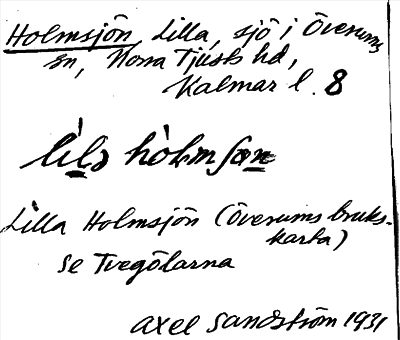 Holmsjön, Lilla, sjö i Överums
sn, Norra Tjusts hd,
Kalmar l. 8
Lilla Holmsjön (Överums bruks-
karta)
se Tvegölarna
Axel Sandström 1931